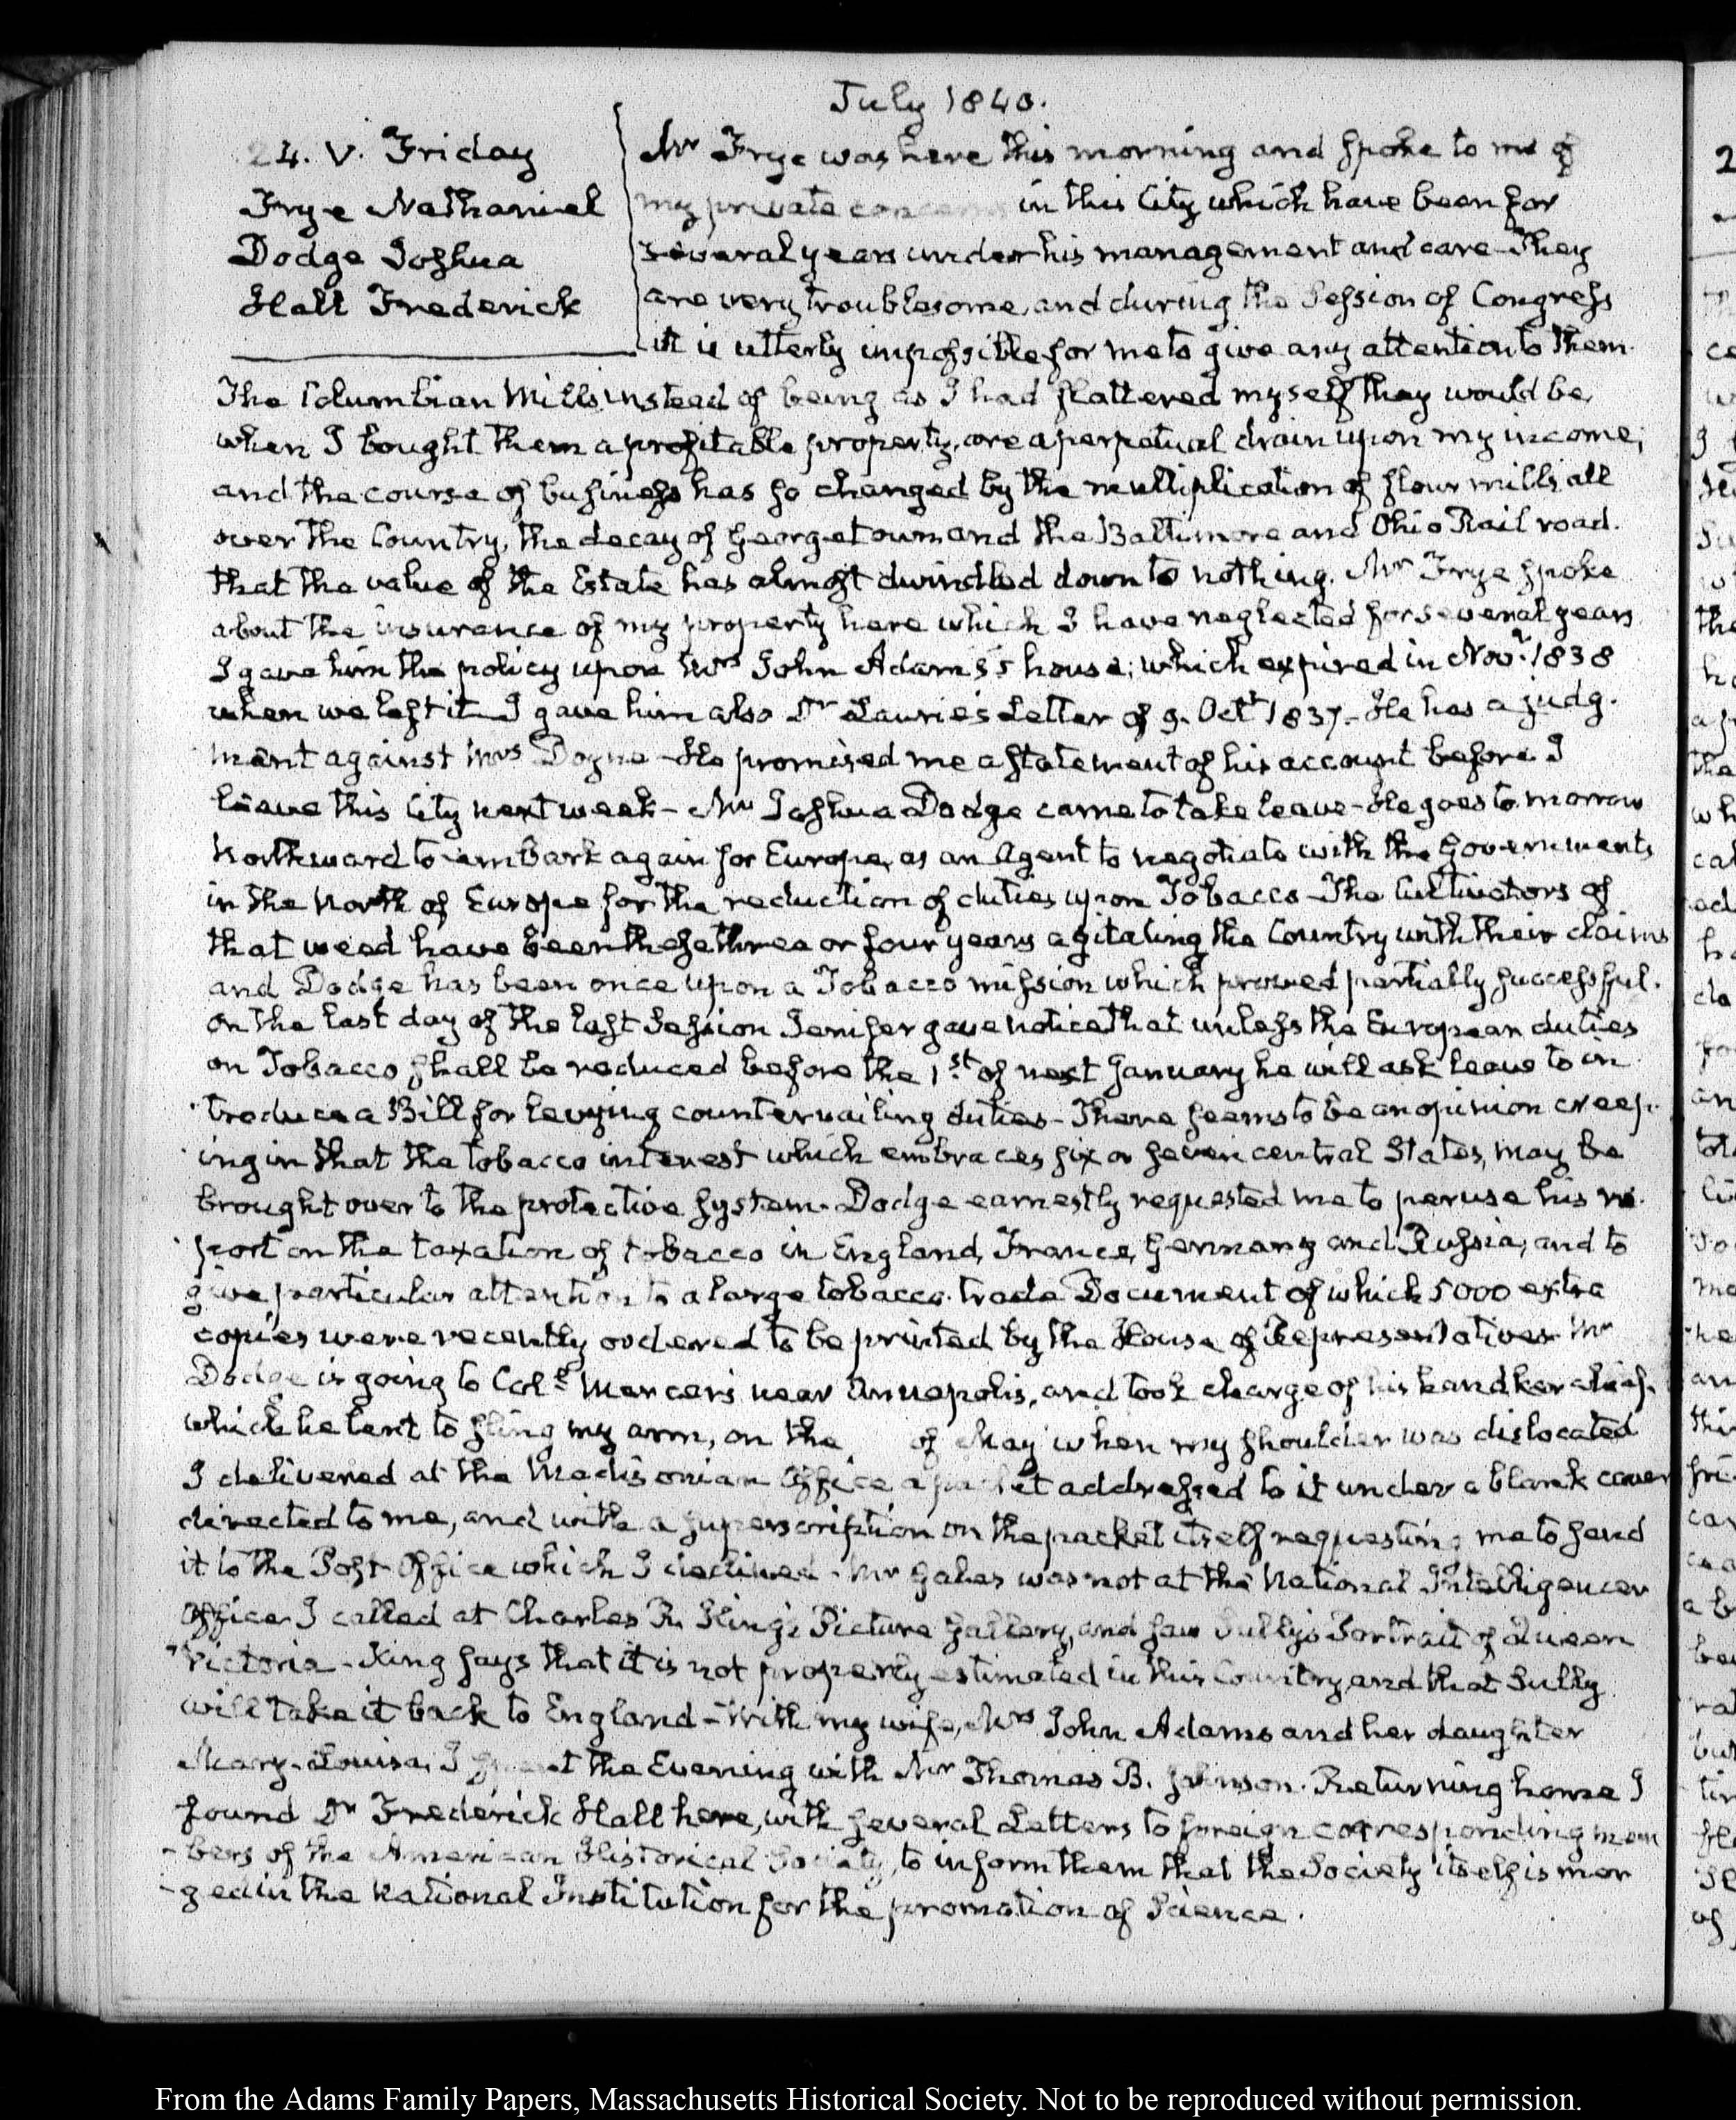 July 1840.
24. V. Friday
Frye Nathaniel
Dodge Joshua
Hall Frederick
Mr Frye was here this morning and spoke to me of
my private concerns in this City which have been for
several years under his management and care—They
are very troublesome, and during the Session of Congress
it is utterly impossible for me to give any attention to them.
The Columbian Mills, instead of being as I had flattered myself they would be,
when I bought them a profitable property, are a perpetual drain upon my income;
and the course of business has so changed by the multiplication of flour mills all
over the Country, the decay of Georgetown and the Baltimore and Ohio Rail road.
that the value of the Estate has almost dwindled down to nothing. Mr Frye spoke
about the insurance of my property here which I have neglected for several years
I gave him the policy upon Mrs John Adams's house; which expired in Novr. 1838
when we left it—I gave him also Dr Laurie's Letter of 9. Octr 1837.—He has a judg-
ment against Mrs Doyne—He promised me a statement of his account before I
leave this City next week—Mr Joshua Dodge came to take leave—He goes to morrow
Northward to embark again for Europe, as an Agent to negotiate with the Governments
in the North of Europe for the reduction of duties upon Tobacco—The Cultivators of
that weed have been these three or four years agitating the Country with their claims
and Dodge has been once upon a Tobacco mission which proved partially successful.
On the last day of the last Session Jenifer gave notice that unless the European duties
on Tobacco shall be reduced before the 1st. of next January he will ask leave to in
-troduce a Bill for levying countervailing duties—There seems to be an opinion creep-
-ing in that the tobacco interest which embraces six or seven central States, may be
brought over to the protective system. Dodge earnestly requested me to peruse his re-
-port on the taxation of tobacco in England, France, Germany and Russia, and to
give particular attention to a large tobacco-trade Document of which 5000 extra
copies were recently ordered to be printed by the House of Representatives—Mr
Dodge is going to Coll. Mercer's near Annapolis, and took charge of his handkerchief.
which he lent to sling my arm, on the of May when my shoulder was dislocated
I delivered at the Madisonian Office a packet addressed to it under a blank cover
directed to me, and with a superscription on the packet itself requesting me to send
it to the Post-Office which I declined—Mr Gales was not at the National Intelligencer
Office. I called at Charles R. King's Picture Gallery, and saw Sully's Portrait of Queen
Victoria—King says that it is not properly estimated in this Country, and that Sully
will take it back to England—With my wife, Mrs John Adams and her daughter
Mary-Louisa, I spent the Evening with Mr Thomas B. Johnson. Returning home I
found Dr Frederick Hall here, with several Letters to foreign corresponding mem
-bers of the American Historical Society, to inform them that the Society itself is mer
-ged in the National Institution for the promotion of Science.
From the Adams Family Papers, Massachusetts Historical Society. Not to be reproduced without permission.